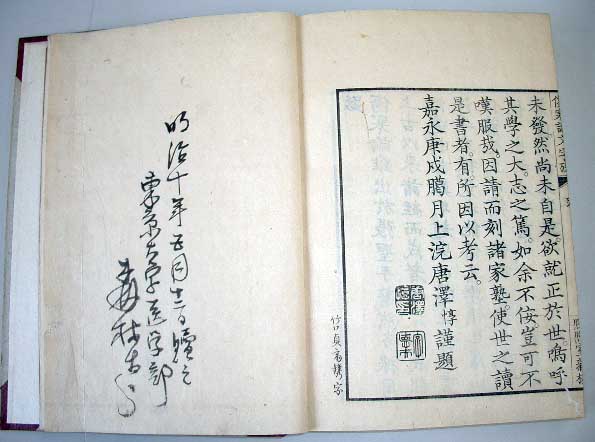 未發。然尚未自是。欲就正於世。嗚呼
其學之大。志之篤。如余不佞。豈可不
嘆服哉。因請而刻諸家塾。使世之讀
是書者。有所因以考云。
嘉永庚戌臈月上浣唐澤惇謹題
竹口貞齋鐫字
明治十年五月十二日贖之
東京大学医学部